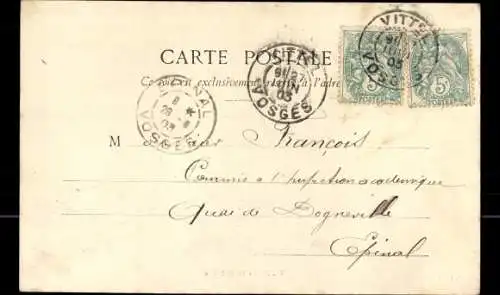 CARTE POSTALE
Ce côté est exclusivement réservé à l'adresse
VITTEL
VOSGES
VITTEL
VOSGES
5
POSTES
5
POSTES
EPINAL
VOSGES
M François
Commis à l'Inspection académique
Quai de Dogneville
Epinal